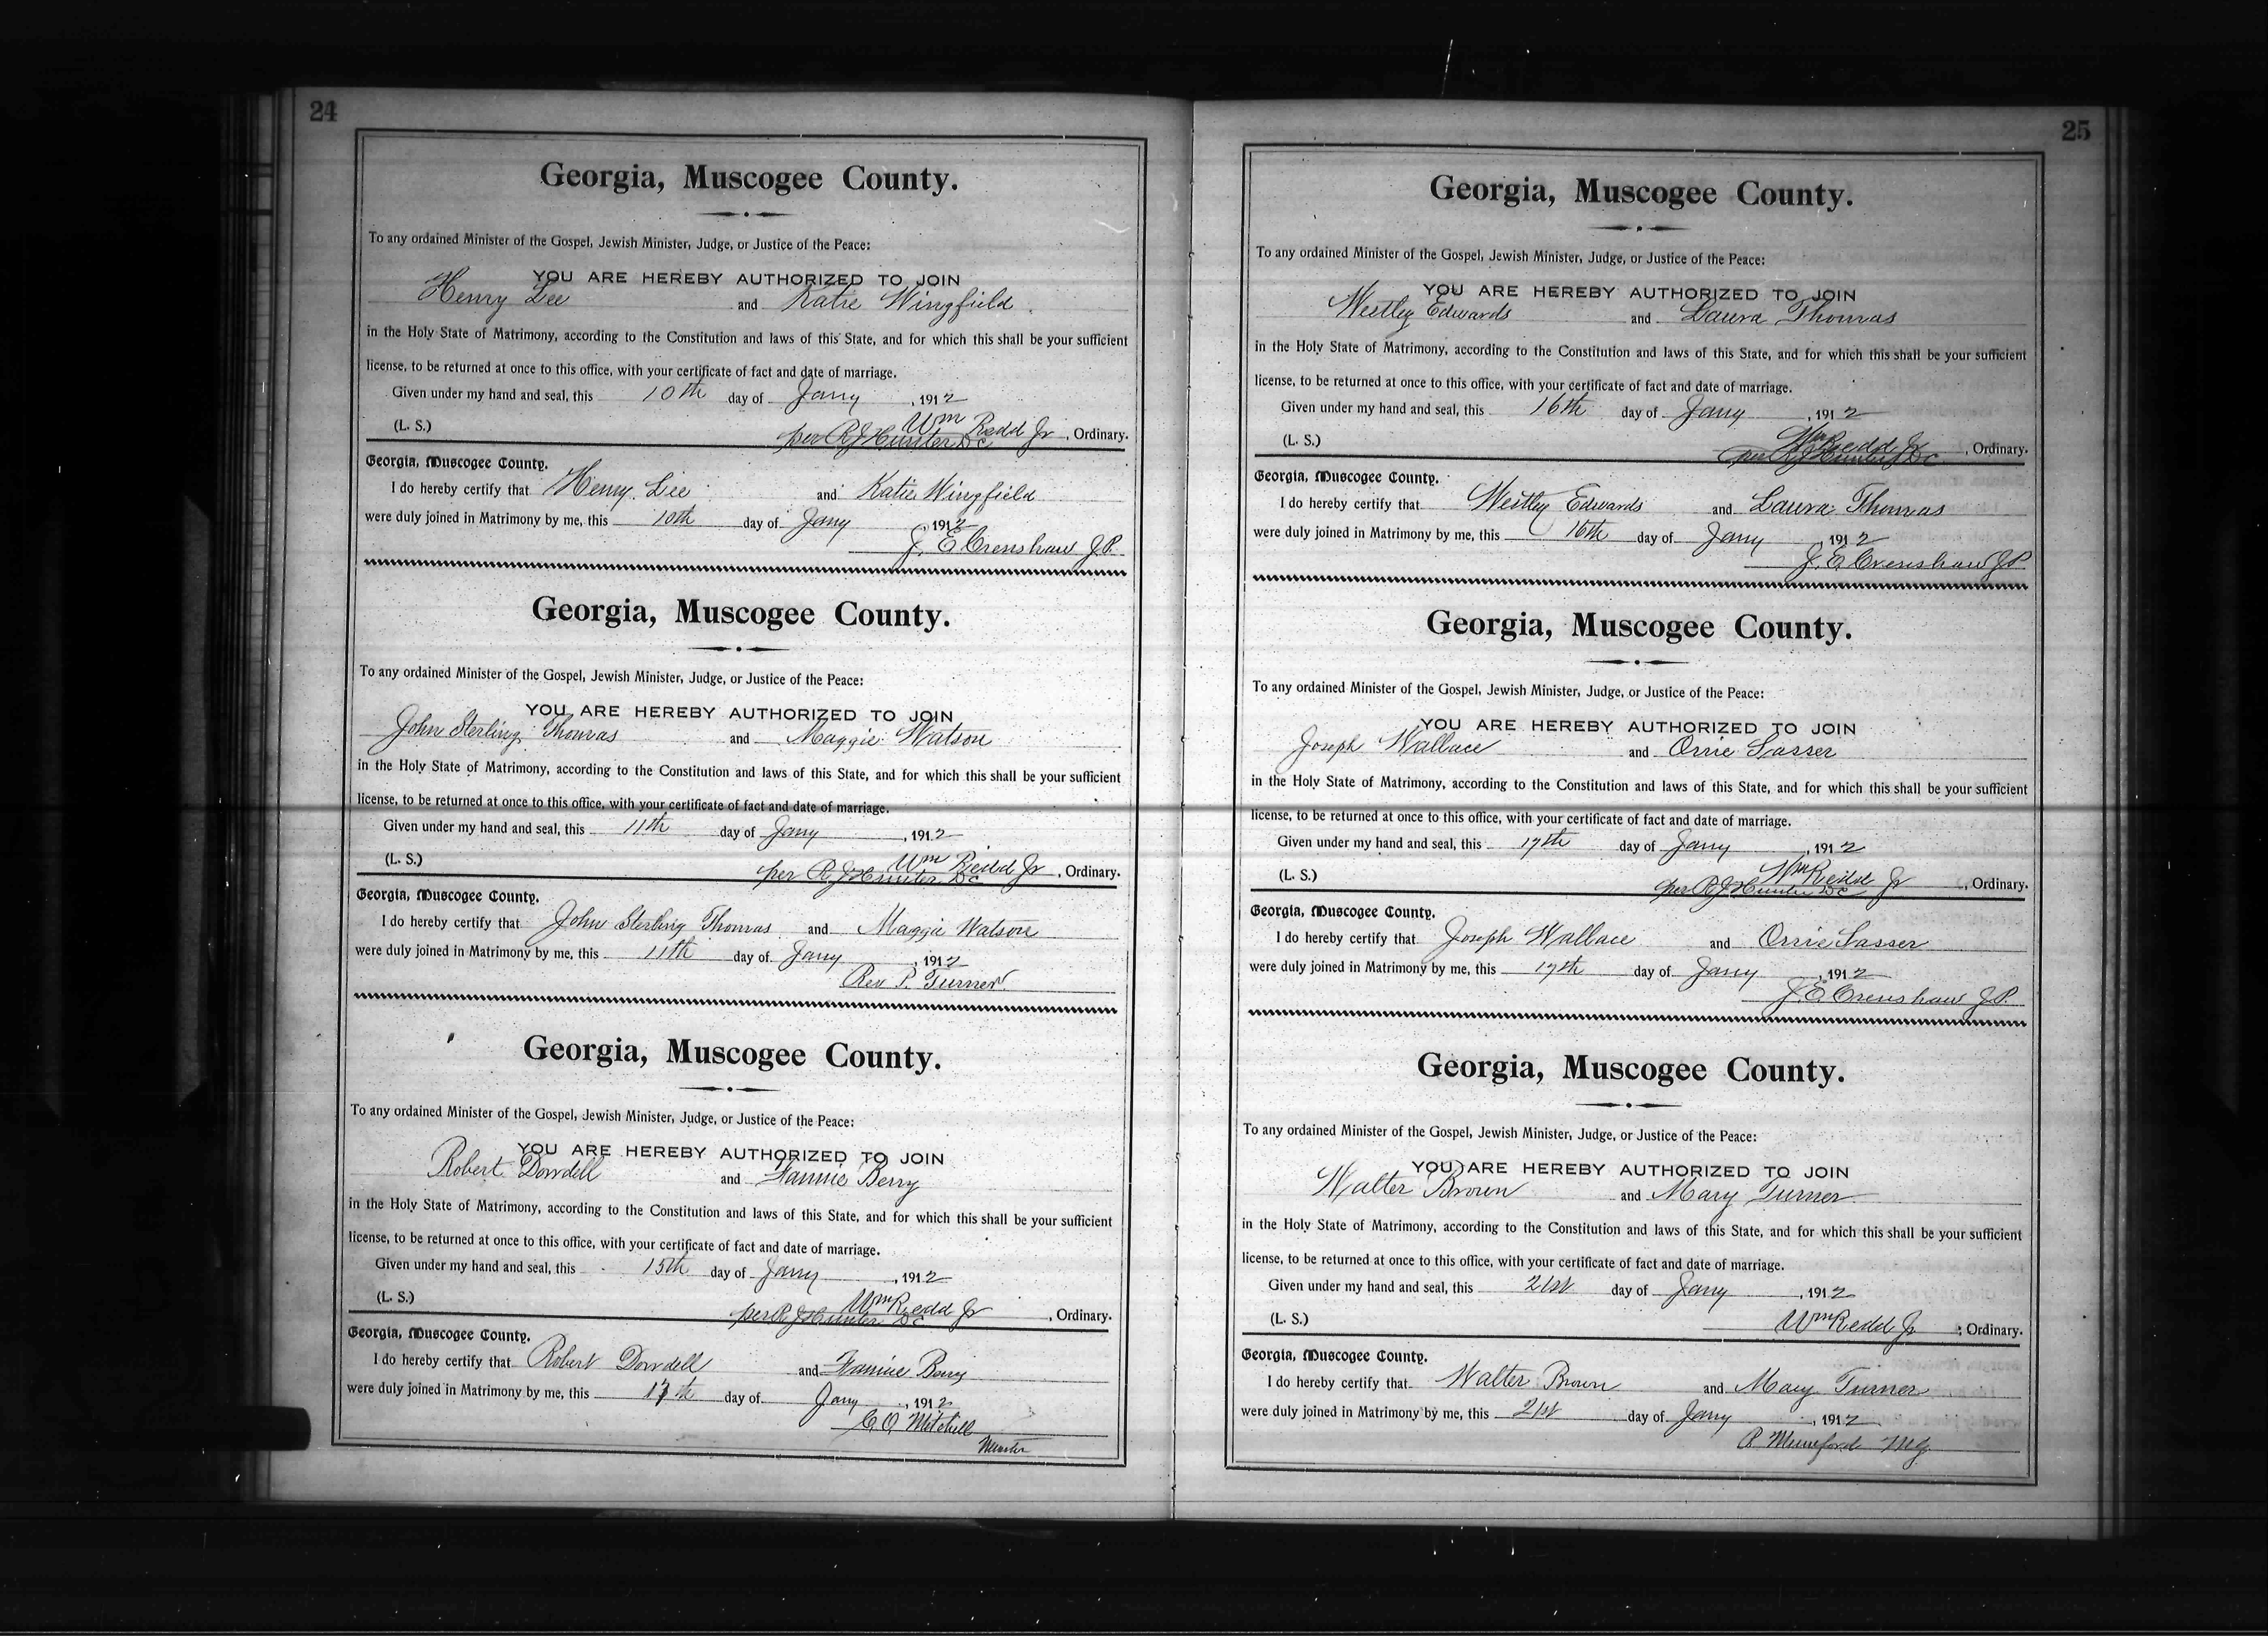 24
Georgia, Muscogee County.
To any ordained Minister of the Gospel, Jewish Minister, Judge, or Justice of the Peace:
YOU ARE HEREBY AUTHORIZED TO JOIN
Henry Lee and Katie Wingfield
in the Holy State of Matrimony, according to the Constitution and laws of this State, and for which this shall be your sufficient
license, to be returned at once to this office, with your certificate of fact and date of marriage.
Given under my hand and seal, this 10th day of Jany, 1912
Wm Redd Jr
(L. S.) per R J Hunter DC, Ordinary.
Georgia, Muscogee County.
I do hereby certify that Henry Lee and Katie Wingfield
were duly joined in Matrimony by me, this 10th day of Jany, 1912
J. E Crenshaw J.P.
Georgia, Muscogee County.
To any ordained Minister of the Gospel, Jewish Minister, Judge, or Justice of the Peace:
YOU ARE HEREBY AUTHORIZED TO JOIN
John Sterling Thomas and Maggie Watson
in the Holy State of Matrimony, according to the Constitution and laws of this State, and for which this shall be your sufficient
license, to be returned at once to this office, with your certificate of fact and date of marriage.
Given under my hand and seal, this 11th day of Jany, 1912
Wm Redd Jr
(L. S.) per R J Hunter DC, Ordinary.
Georgia, Muscogee County.
I do hereby certify that John Sterling Thomas and Maggie Watson
were duly joined in Matrimony by me, this 11th day of Jany, 1912
Rev P. Turner
Georgia, Muscogee County.
To any ordained Minister of the Gospel, Jewish Minister, Judge, or Justice of the Peace:
YOU ARE HEREBY AUTHORIZED TO JOIN
Robert Dowdell and Fannie Berry
in the Holy State of Matrimony, according to the Constitution and laws of this State, and for which this shall be your sufficient
license, to be returned at once to this office, with your certificate of fact and date of marriage.
Given under my hand and seal, this 15th day of Jany, 1912
Wm Redd Jr
(L. S.) per R J Hunter DC, Ordinary.
Georgia, Muscogee County.
I do hereby certify that Robert Dowdell and Fannie Berry
were duly joined in Matrimony by me, this 17th day of Jany, 1912
C. O. Mitchell
Minister
25
Georgia, Muscogee County.
To any ordained Minister of the Gospel, Jewish Minister, Judge, or Justice of the Peace:
YOU ARE HEREBY AUTHORIZED TO JOIN
Westley Edwards and Laura Thomas
in the Holy State of Matrimony, according to the Constitution and laws of this State, and for which this shall be your sufficient
license, to be returned at once to this office, with your certificate of fact and date of marriage.
Given under my hand and seal, this 16th day of Jany, 1912
Wm Redd Jr
(L. S.) per R J Hunter DC, Ordinary.
Georgia, Muscogee County.
I do hereby certify that Westley Edwards and Laura Thomas
were duly joined in Matrimony by me, this 16th day of Jany, 1912
J. E. Crenshaw J.P.
Georgia, Muscogee County.
To any ordained Minister of the Gospel, Jewish Minister, Judge, or Justice of the Peace:
YOU ARE HEREBY AUTHORIZED TO JOIN
Joseph Wallace and Orrie Lasser
in the Holy State of Matrimony, according to the Constitution and laws of this State, and for which this shall be your sufficient
license, to be returned at once to this office, with your certificate of fact and date of marriage.
Given under my hand and seal, this 17th day of Jany, 1912
Wm Redd Jr
(L. S.) per R J Hunter DC, Ordinary.
Georgia, Muscogee County.
I do hereby certify that Joseph Wallace and Orrie Lasser
were duly joined in Matrimony by me, this 17th day of Jany, 1912
J. E Crenshaw J.P.
Georgia, Muscogee County.
To any ordained Minister of the Gospel, Jewish Minister, Judge, or Justice of the Peace:
YOU ARE HEREBY AUTHORIZED TO JOIN
Walter Brown and Mary Turner
in the Holy State of Matrimony, according to the Constitution and laws of this State, and for which this shall be your sufficient
license, to be returned at once to this office, with your certificate of fact and date of marriage.
Given under my hand and seal, this 21st day of Jany, 1912
(L. S.) Wm Redd Jr, Ordinary.
Georgia, Muscogee County.
I do hereby certify that Walter Brown and Mary Turner
were duly joined in Matrimony by me, this 21st day of Jany, 1912
P Mumford M.G.